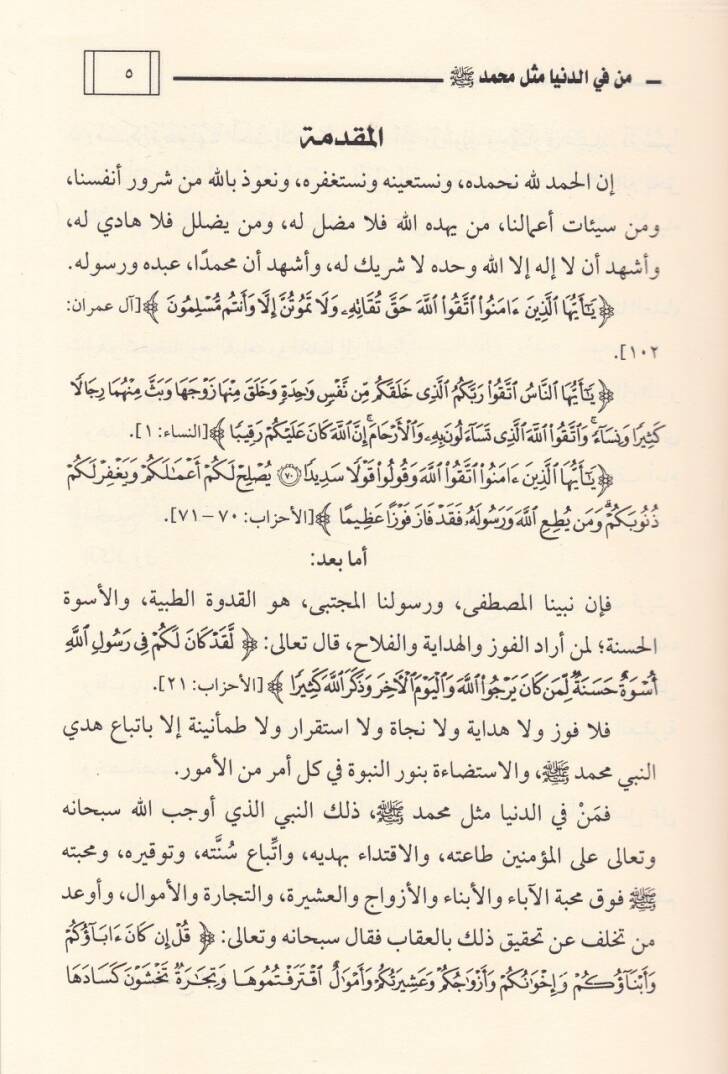 من في الدنيا مثل محمد ﷺ
٥
المقدمة
إن الحمد لله نحمده، ونستعينه ونستغفره، ونعوذ بالله من شرور أنفسنا،
ومن سيئات أعمالنا، من يهده الله فلا مضل له، ومن يضلل فلا هادي له،
وأشهد أن لا إله إلا الله وحده لا شريك له، وأشهد أن محمدًا، عبده ورسوله.
﴿ يَٰٓأَيُّهَا ٱلَّذِينَ ءَامَنُوا۟ ٱتَّقُوا۟ ٱللَّهَ حَقَّ تُقَاتِهِۦ وَلَا تَمُوتُنَّ إِلَّا وَأَنتُم مُّسْلِمُونَ ﴾ [آل عمران:
١٠٢].
﴿ يَٰٓأَيُّهَا ٱلنَّاسُ ٱتَّقُوا۟ رَبَّكُمُ ٱلَّذِى خَلَقَكُم مِّن نَّفْسٍ وَٰحِدَةٍ وَخَلَقَ مِنْهَا زَوْجَهَا وَبَثَّ مِنْهُمَا رِجَالًا
كَثِيرًا وَنِسَآءً ۚ وَٱتَّقُوا۟ ٱللَّهَ ٱلَّذِى تَسَآءَلُونَ بِهِۦ وَٱلْأَرْحَامَ ۚ إِنَّ ٱللَّهَ كَانَ عَلَيْكُمْ رَقِيبًا ﴾ [النساء: ١].
﴿ يَٰٓأَيُّهَا ٱلَّذِينَ ءَامَنُوا۟ ٱتَّقُوا۟ ٱللَّهَ وَقُولُوا۟ قَوْلًا سَدِيدًا ﴿٧٠﴾ يُصْلِحْ لَكُمْ أَعْمَٰلَكُمْ وَيَغْفِرْ لَكُمْ
ذُنُوبَكُمْ ۗ وَمَن يُطِعِ ٱللَّهَ وَرَسُولَهُۥ فَقَدْ فَازَ فَوْزًا عَظِيمًا ﴾ [الأحزاب: ٧٠ – ٧١].
أما بعد:
فإن نبينا المصطفى، ورسولنا المجتبى، هو القدوة الطبية، والأسوة
الحسنة؛ لمن أراد الفوز والهداية والفلاح، قال تعالى: ﴿ لَّقَدْ كَانَ لَكُمْ فِى رَسُولِ ٱللَّهِ
أُسْوَةٌ حَسَنَةٌ لِّمَن كَانَ يَرْجُوا۟ ٱللَّهَ وَٱلْيَوْمَ ٱلْـَٔاخِرَ وَذَكَرَ ٱللَّهَ كَثِيرًا ﴾ [الأحزاب: ٢١].
فلا فوز ولا هداية ولا نجاة ولا استقرار ولا طمأنينة إلا باتباع هدي
النبي محمد ﷺ، والاستضاءة بنور النبوة في كل أمر من الأمور.
فمَنْ في الدنيا مثل محمد ﷺ، ذلك النبي الذي أوجب الله سبحانه
وتعالى على المؤمنين طاعته، والاقتداء بهديه، واتِّباع سُنَّته، وتوقيره، ومحبته
ﷺ فوق محبة الآباء والأبناء والأزواج والعشيرة، والتجارة والأموال، وأوعد
من تخلف عن تحقيق ذلك بالعقاب فقال سبحانه وتعالى: ﴿ قُلْ إِن كَانَ ءَابَآؤُكُمْ
وَأَبْنَآؤُكُمْ وَإِخْوَٰنُكُمْ وَأَزْوَٰجُكُمْ وَعَشِيرَتُكُمْ وَأَمْوَٰلٌ ٱقْتَرَفْتُمُوهَا وَتِجَٰرَةٌ تَخْشَوْنَ كَسَادَهَا